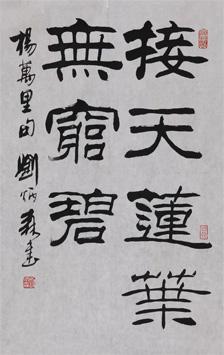 接天蓮葉
無窮碧
楊萬里句 劉炳森書